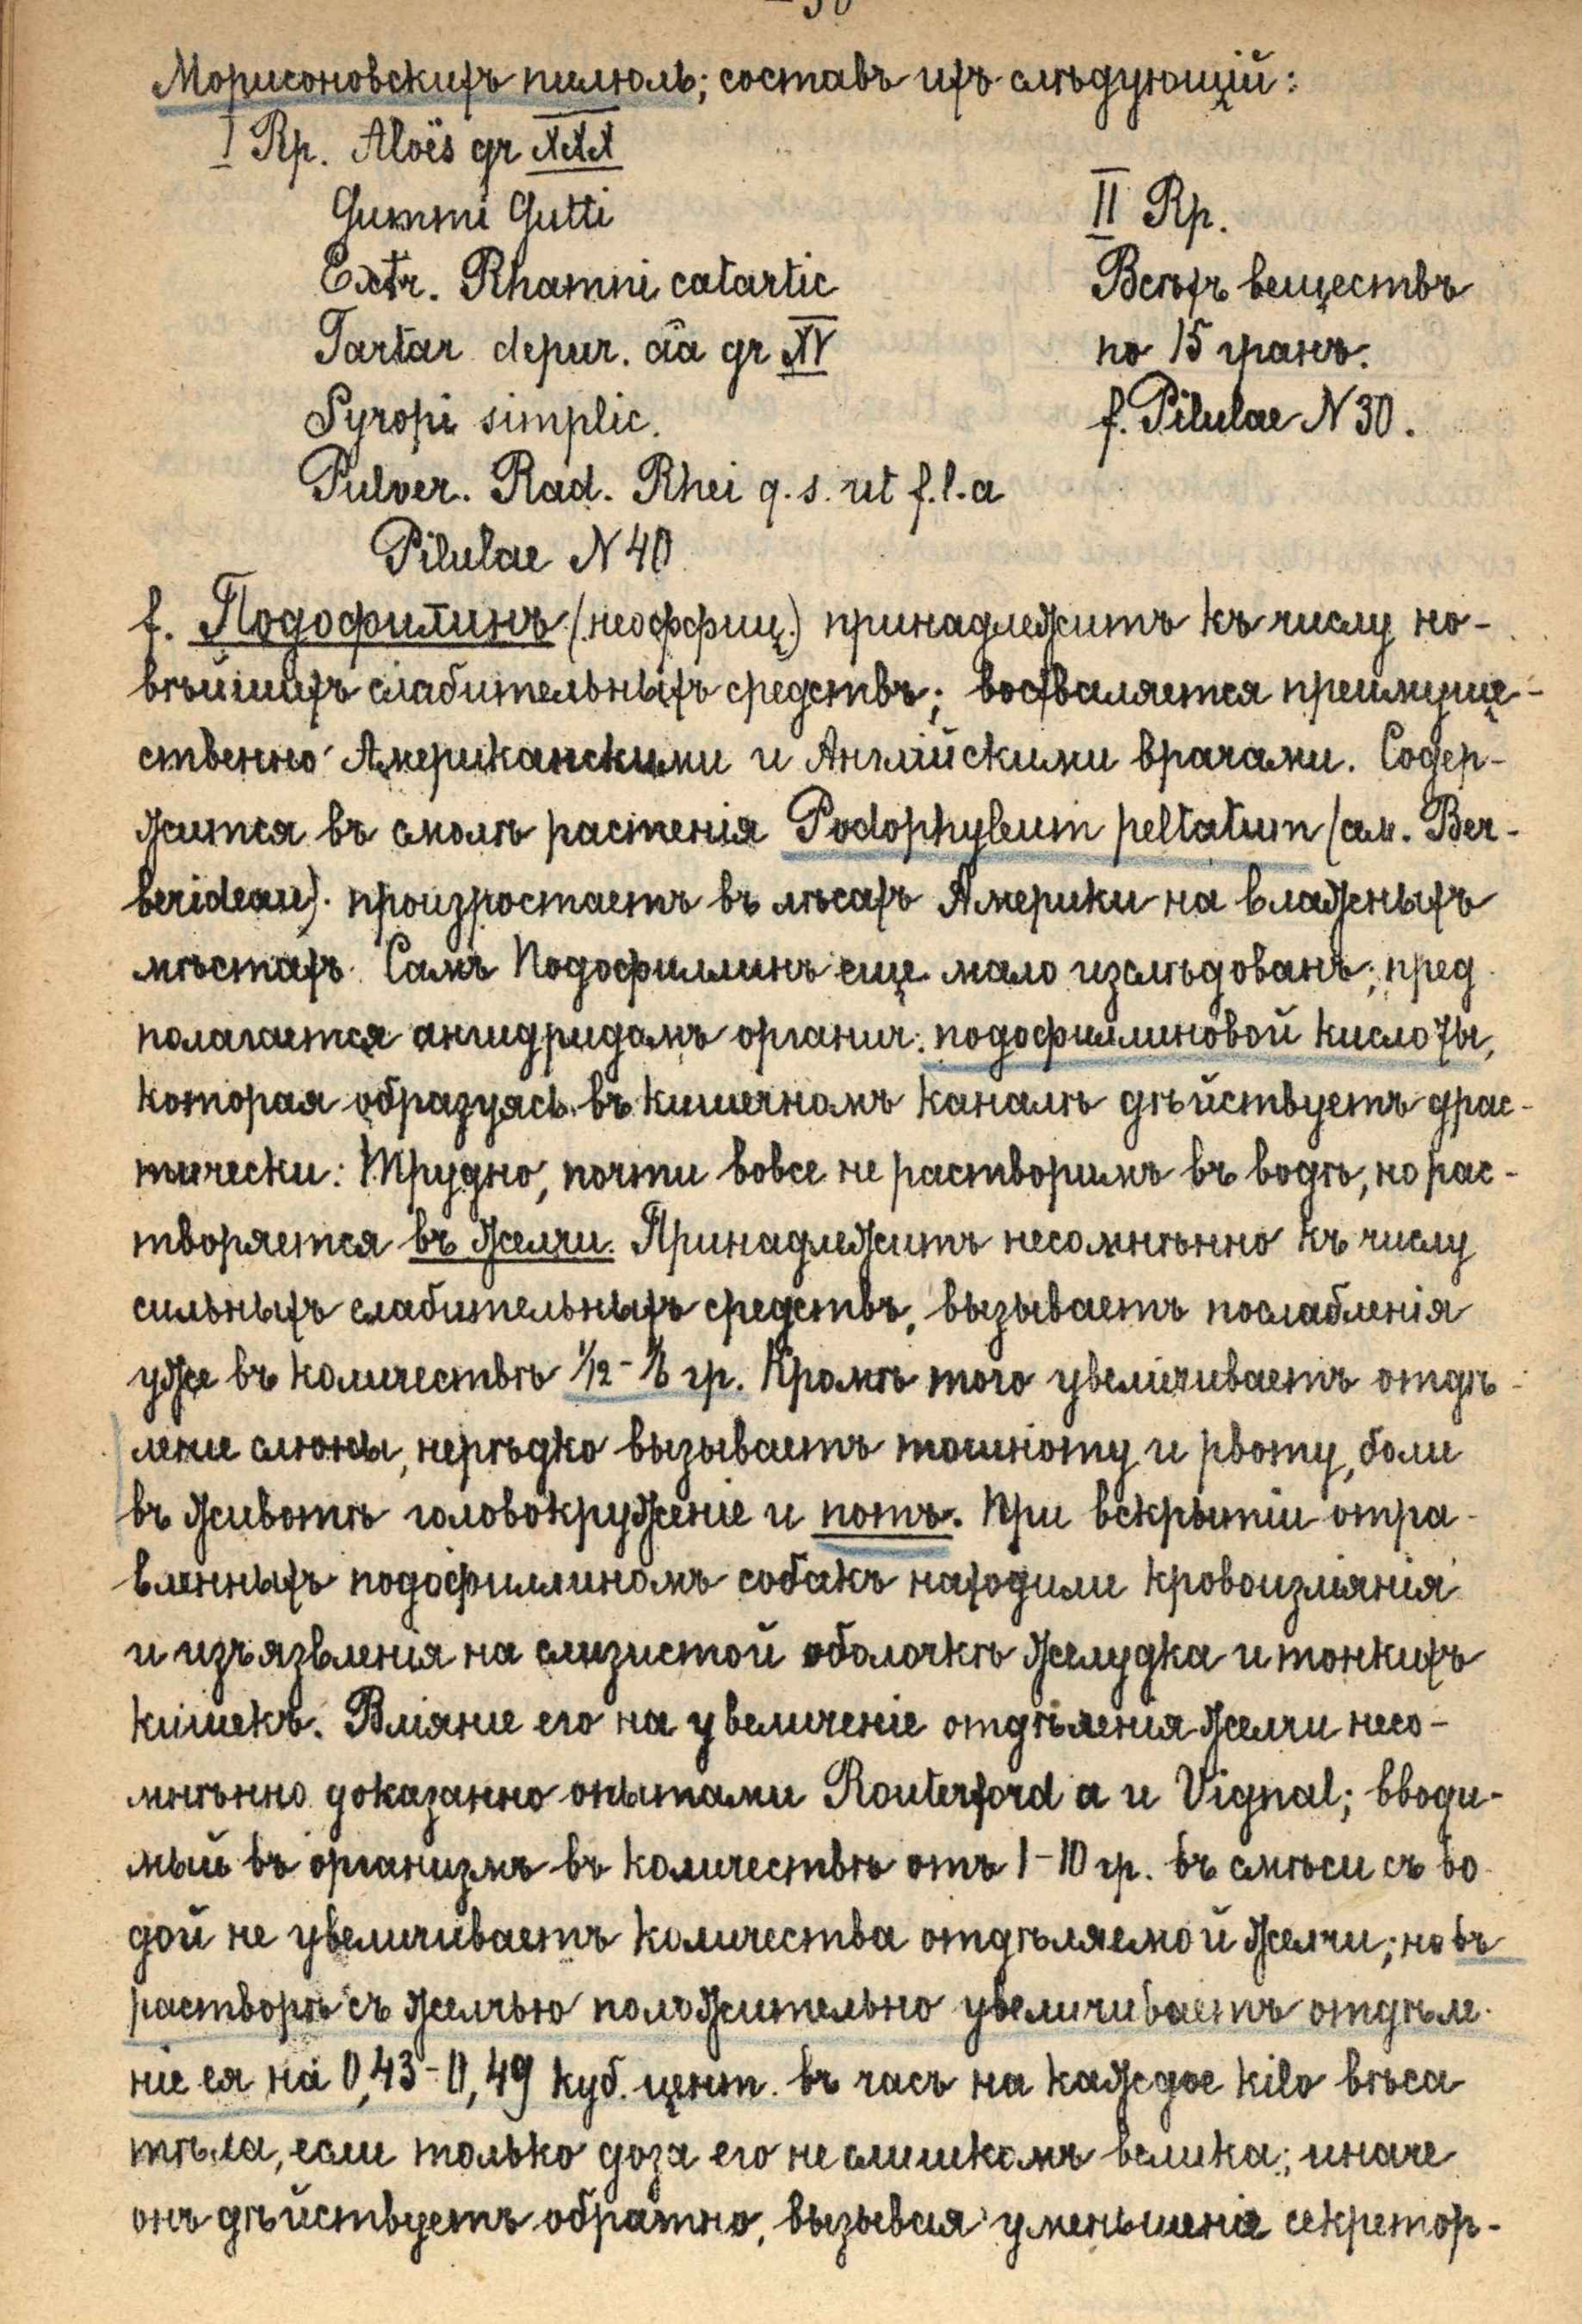 Морисоновскихъ пилюль; составъ ихъ слѣдующій:
I Rp. Aloës gr XXX
Gummi Gutti
Extr. Rhamni catartic
Tartar depur. āā gr XV
Syropi simplic.
Pulver. Rad. Rhei q.s. ut f.l.a
Pilulae N 40
II Rp.
Всѣхъ веществъ
по 15 гранъ.
f. Pilulae N 30.
f. Подофиллинъ (неоффиц.) принадлежитъ къ числу но-
вѣйшихъ слабительныхъ средствъ; восхваляется преимуще-
ственно Американскими и Англійскими врачами. Содер-
жится въ смолѣ растенія Podophyleum peltatum (сем. Ber-
berideau). произростаетъ въ лѣсахъ Америки на влажныхъ
мѣстахъ. Самъ Подофиллинъ еще мало изслѣдованъ; пред
полагается ангидридомъ органич. подофиллиновой кислоты,
которая образуясь въ кишечномъ каналѣ дѣйствуетъ драс-
тически: Трудно, почти вовсе не растворимъ въ водѣ, но рас-
творяется въ желчи. Принадлежитъ несомнѣнно къ числу
сильныхъ слабительныхъ средствъ, вызываетъ послабленія
уже въ количествѣ 1/12 - 1/6 гр. Кромѣ того увеличиваетъ отдѣ-
леніе слюны, нерѣдко вызываетъ тошноту и рвоту, боли
въ животѣ головокруженіе и потъ. При вскрытіи отра-
вленныхъ подофиллиномъ собакъ находили кровоизліянія
и изъязвленія на слизистой оболочкѣ желудка и тонкихъ
кишекъ. Вліяние его на увеличеніе отдѣленія желчи несо-
мнѣнно доказанно опытами Routerford а и Vignal; вводи-
мый въ организмъ въ количествѣ отъ 1-10 гр. въ смѣси съ во-
дой не увеличиваетъ количества отдѣляемой желчи; но въ
растворѣ съ желчью положительно увеличиваетъ отдѣле-
ніе ея на 0,43-0,49 куб. цент. въ часъ на каждое kilo вѣса
тѣла, если только доза его не слишкомъ велика; иначе
онъ дѣйствуетъ обратно, вызывая уменьшеніе секретор-